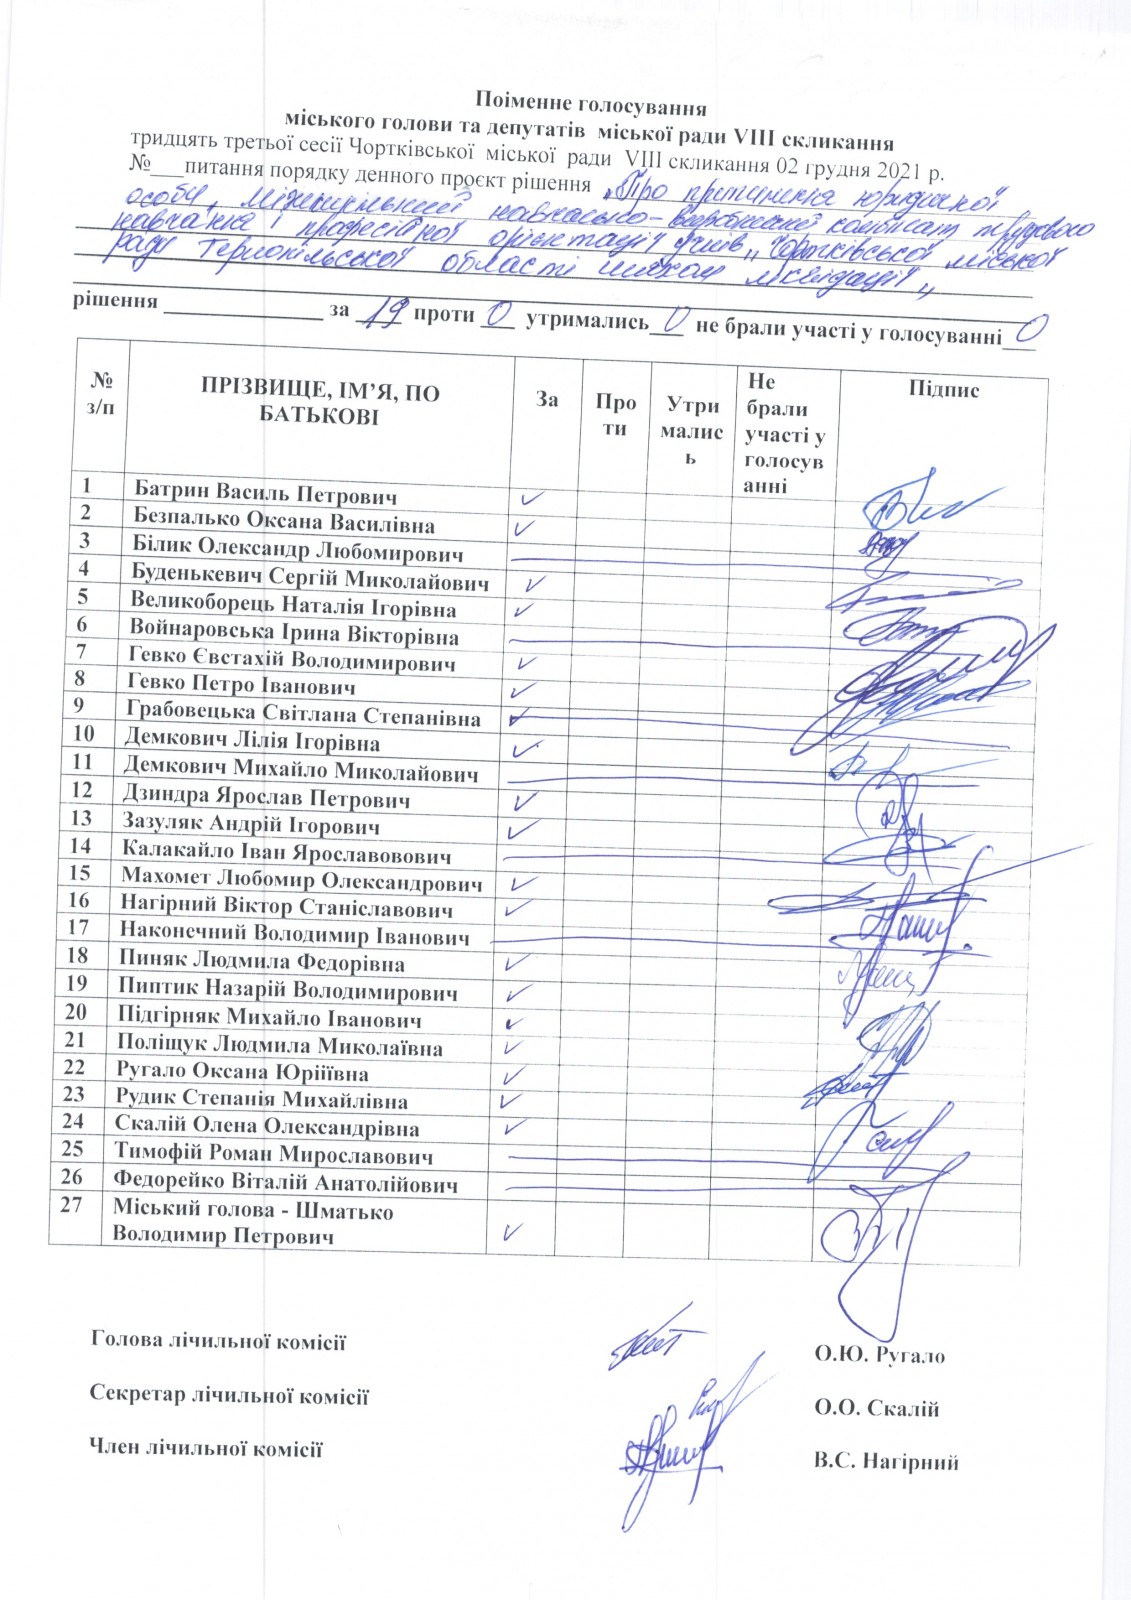 Поіменне голосування
міського голови та депутатів міської ради VIII скликання
тридцять третьої сесії Чортківської міської ради VIII скликання 02 грудня 2021 р.
№___питання порядку денного проєкт рішення „Про припинення юридичної
особи, Міжшкільний навчально-виробничий комбінат трудового
навчання і професійної орієнтації учнів„ Чортківської міської
ради Тернопільської області шляхом ліквідації„
рішення ______________ за 19 проти 0 утримались 0 не брали участі у голосуванні 0
№ з/п ПРІЗВИЩЕ, ІМ’Я, ПО БАТЬКОВІ За Про ти Утри малис ь Не брали участі у голосув анні Підпис
1 Батрин Василь Петрович ✓
2 Безпалько Оксана Василівна ✓
3 Білик Олександр Любомирович
4 Буденькевич Сергій Миколайович ✓
5 Великоборець Наталія Ігорівна ✓
6 Войнаровська Ірина Вікторівна
7 Гевко Євстахій Володимирович ✓
8 Гевко Петро Іванович ✓
9 Грабовецька Світлана Степанівна
10 Демкович Лілія Ігорівна ✓
11 Демкович Михайло Миколайович
12 Дзиндра Ярослав Петрович ✓
13 Зазуляк Андрій Ігорович ✓
14 Калакайло Іван Ярославовович
15 Махомет Любомир Олександрович ✓
16 Нагірний Віктор Станіславович ✓
17 Наконечний Володимир Іванович
18 Пиняк Людмила Федорівна ✓
19 Пиптик Назарій Володимирович ✓
20 Підгірняк Михайло Іванович ✓
21 Поліщук Людмила Миколаївна ✓
22 Ругало Оксана Юріїївна ✓
23 Рудик Степанія Михайлівна ✓
24 Скалій Олена Олександрівна ✓
25 Тимофій Роман Мирославович
26 Федорейко Віталій Анатолійович
27 Міський голова - Шматько
Володимир Петрович ✓
Голова лічильної комісії О.Ю. Ругало
Секретар лічильної комісії О.О. Скалій
Член лічильної комісії В.С. Нагірний